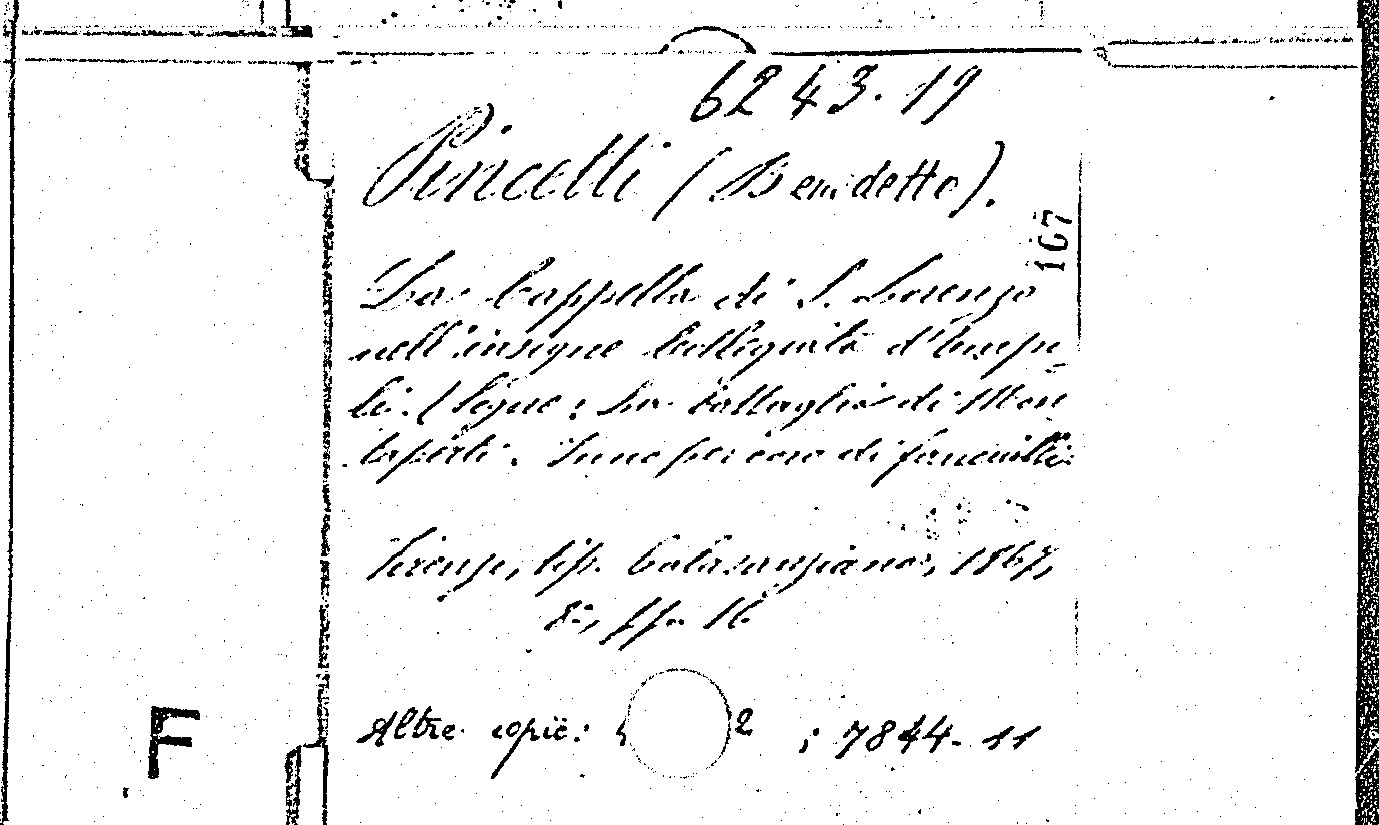 6243.19
Pincelli (Benedetto).
107
La Cappella di S. Lorenzo
nell'insigne Collegiata d'Empo-
li. (Segue: La battaglia di Mon
taperti. Inno per coro di fanciulli.
Firenze, tip. Calasanziana, 1867,
8°, pp. 16
Altre copie: 2 ; 7844.11
F